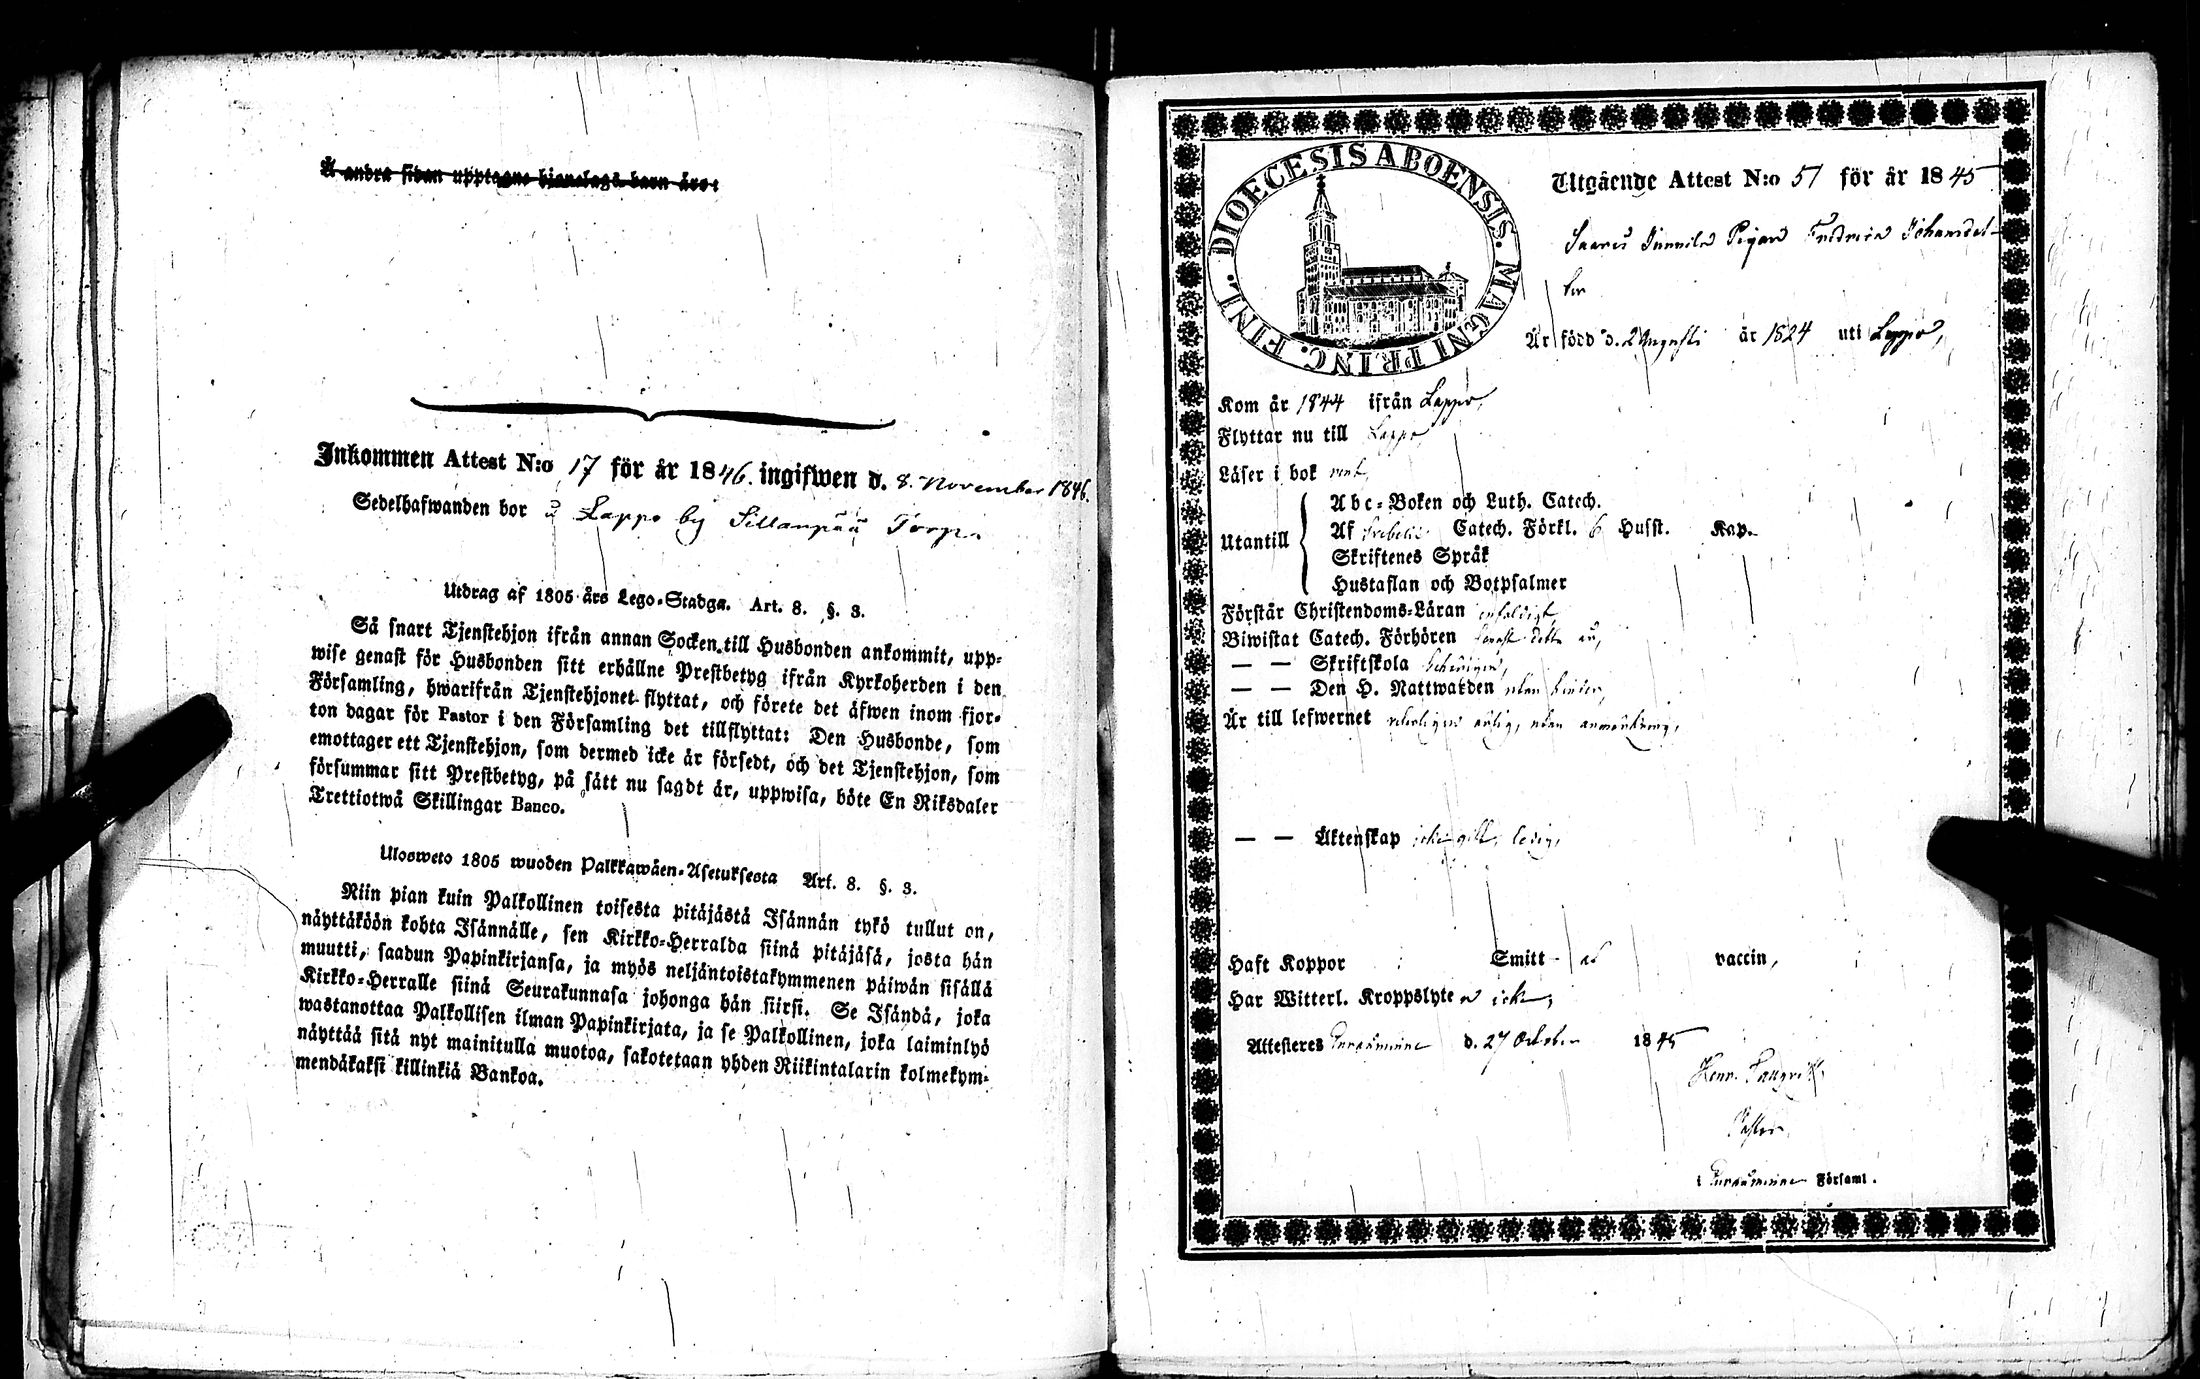 Å andra sidan upptagne hjonelags barn äro:
Inkommen Attest N:o 17 för år 1846. ingifwen d. 8. November 1846.
Sedelhafwanden bor i Lappo by Sillanpää Torp.
Utdrag af 1805 års Lego-Stadga. Art. 8. §. 3.
Så snart Tjenstehjon ifrån annan Socken till Husbonden ankommit, upp-
wise genast för Husbonden sitt erhållne Prestbetyg ifrån Kyrkoherden i den
Församling, hwarifrån Tjenstehjonet flyttat, och förete det äfwen inom fjor-
ton dagar för Pastor i den Församling det tillflyttat: Den Husbonde, som
emottager ett Tjenstehjon, som dermed icke är försedt, och det Tjenstehjon, som
försummar sitt Prestbetyg, på sätt nu sagdt är, uppwisa, böte En Riksdaler
Trettiotwå Skillingar Banco.
Ulosweto 1805 wuoden Palkkawäen-Asetuksesta Art. 8. §. 3.
Niin pian kuin Palkollinen toisesta pitäjästä Isännän tykö tullut on,
näyttäköön kohta Isännälle, sen Kirkko-Herralda siinä pitäjäsä, josta hän
muutti, saadun Papinkirjansa, ja myös neljäntoistakymmenen päiwän sisällä
Kirkko-Herralle siinä Seurakunnasa johonga hän siirsi. Se Isändä, joka
wastanottaa Palkollisen ilman Papinkirjata, ja se Palkollinen, joka laiminlyö
näyttää sitä nyt mainitulla muotoa, sakotetaan yhden Riikintalarin kolmekym-
mendäkaksi killinkiä Bankoa.
DIOECESIS ABOENSIS. MAGNI PRINC. FINL.
Utgående Attest N:o 57 för år 1845
Pigan Fredrica Johansdot-
ter
Är född d. 2 Augusti år 1824 uti Lappo,
Kom år 1844 ifrån Lappo,
Flyttar nu till Lappo
Läser i bok rent,
Utantill
Abc-Boken och Luth. Catech.
Af Svebelii Catech. Förkl. 6 Hufst. Kap.
Skriftenes Språk
Hustaflan och Botpsalmer
Förstår Christendoms-Läran enfaldigt,
Biwistat Catech. Förhören senast detta år,
— — Skriftskola behörigen,
— — Den H. Nattwarden utan hinder,
Är till lefwernet ärlig, utan anmärkning,
— — Äktenskap icke gift, ledig,
Haft Koppor Smitt- as vaccin,
Har Witterl. Kroppslyte n ick,
Attesteres Euraåminne d. 27 October 1845
Henr.
Pastor
i Euraåminne Församl.